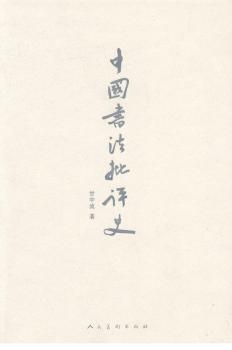 中國書法批評史
甘中流 著
人民美術出版社